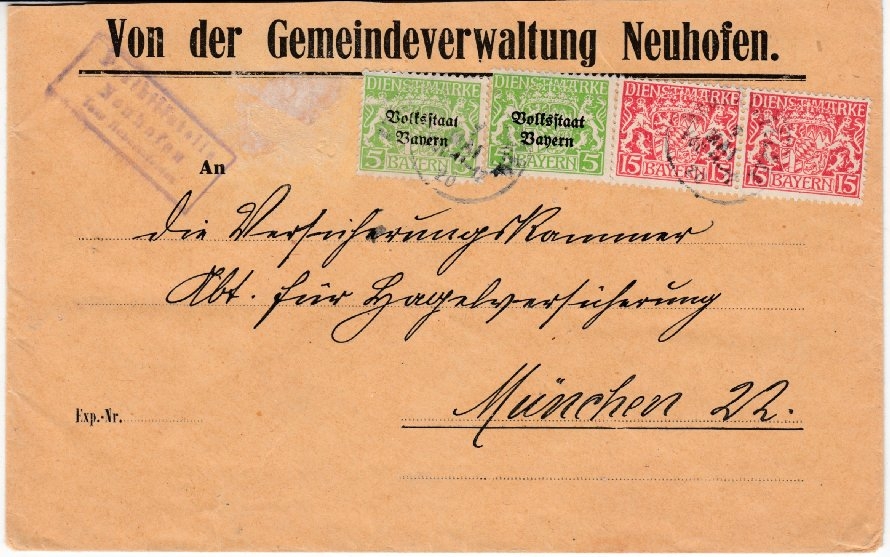 Von der Gemeindeverwaltung Neuhofen.
DIENSTMARKE
Volksstaat
Bayern
5 BAYERN 5
DIENSTMARKE
Volksstaat
Bayern
5 BAYERN 5
DIENSTMARKE
15 BAYERN 15
DIENSTMARKE
15 BAYERN 15
An
die Versicherungskammer
Abt. für Hagelversicherung
München 22.
Exp.-Nr.